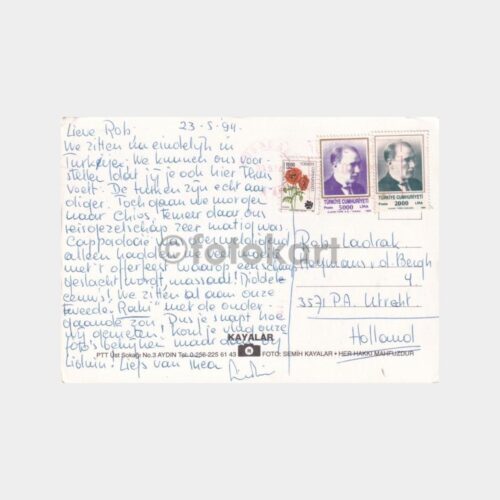 Lieve Rob, 23-5-94.
We zitten nu eindelijk in
Turkije. We kunnen ons voor
stellen dat je je ook hier Thuis
voelt. De turken zijn echt aar
diger. Toch gaan we morgen
naar Chios, temeer daar ons
reisgezelschap zeer matig was
Cappadocie was wonderschoon
alleen hadden we
met 't offerfeest waarop een schaap
geslacht wordt, massaal!
We zitten al aan onze
tweede "Raki" met de onder-
gaande zon. Dus je snapt hoe
wij genieten! Kom je vlug onze
foto's bekijken maar
Liefs van Thea
TÜRKİYE CUMHURİYETİ
Posta 5000 LİRA
TÜRKİYE CUMHURİYETİ
Posta 2000 LİRA
Rob
Hooymans v.d. Bergh
4
3571 P.A. Utrecht
Holland
©fotokart
KAYALAR
PTT Üst Sokağı No.3 AYDIN Tel: 0-256-225 61 43 FOTO: SEMİH KAYALAR • HER HAKKI MAHFUZDUR